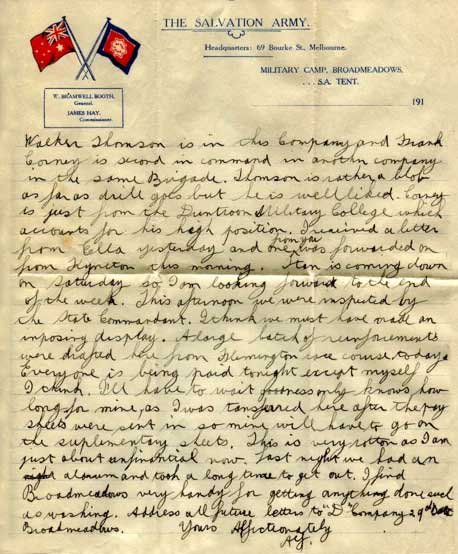 THE SALVATION ARMY.
Headquarters: 69 Bourke St., Melbourne.
MILITARY CAMP, BROADMEADOWS.
. . . S.A. TENT.
W. BRAMWELL BOOTH,
General.
JAMES HAY,
Commissioner.
191
Walker Thomson is in this Company and Frank
Corney is second in command in another company
in the same Brigade. Thomson is rather a blob
as far as drill goes but he is well liked. Corney
is just from the Duntroon Military College which
accounts for his high position. I received a letter
from Ella yesterday and one from you was forwarded on
from Kyneton this morning. Stan is coming down
on Saturday so I am looking forward to the end
of the week. This afternoon we were inspected by
the State Commandant. I think we must have made an
imposing display. A large batch of reinforcements
were drafted here from Flemington race course today.
Everyone is being paid tonight except myself
I think. I'll have to wait goodness only knows how
long for mine, as I was transferred here after the pay
sheets were sent in so mine will have to go on
the suplementary sheets. This is very rotten as I am
just about unfinantial now. Last night we had an
alarum and took a long time to get out. I find
Broadmeadows very handy for getting anything done such
as washing. Address all future letters to "D" Company 29th
Broadmeadows. Yours Affictionately
Alf.